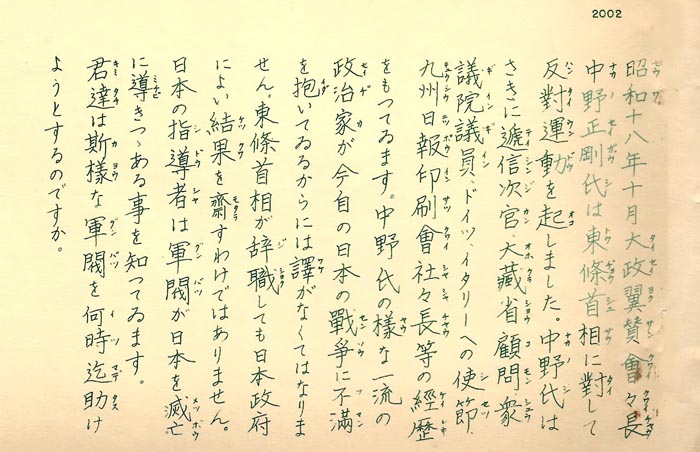 2002
昭和十八年十月大政翼賛會々長
中野正剛氏は東條首相に對して
反對運動を起しました。中野氏は
さきに遞信次官、大藏省顧問、衆
議院議員、ドイツ、イタリーへの使節、
九州日報印刷會社々長等の經歴
をもつてゐます。中野氏の樣な一流の
政治家が今自の日本の戰爭に不滿
を抱いてゐるからには譯がなくてはなりま
せん。東條首相が辞職しても日本政府
によい結果を齋すわけではありません。
日本の指導者は軍閥が日本を滅亡
に導きつゝある事を知つてゐます。
君達は斯樣な軍閥を何時迄助け
ようとするのですか。